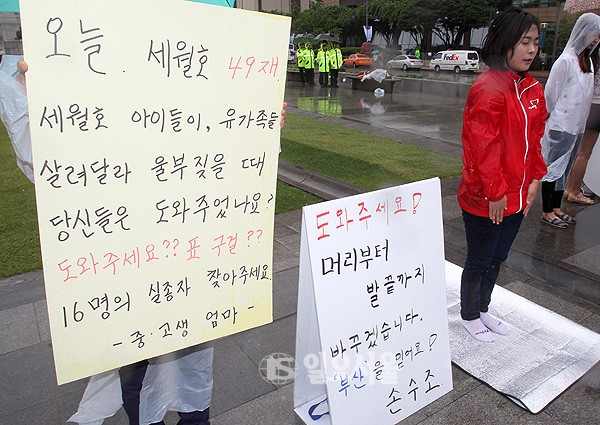 오늘. 세월호 49재
세월호 아이들이, 유가족들
살려달라 울부짖을 때
당신들은 도와주었나요?
도와주세요?? 표 구걸??
16명의 실종자 찾아주세요.
- 중·고생 엄마 -
도와주세요!
머리부터
발끝까지
바꾸겠습니다.
부산을 믿어요!
손수조
FedEx
일요서울